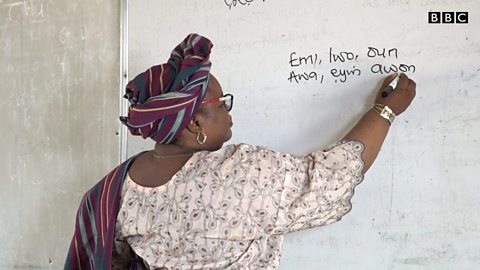 BBC
Emi, Iwo, oun
Awa, eyin awon